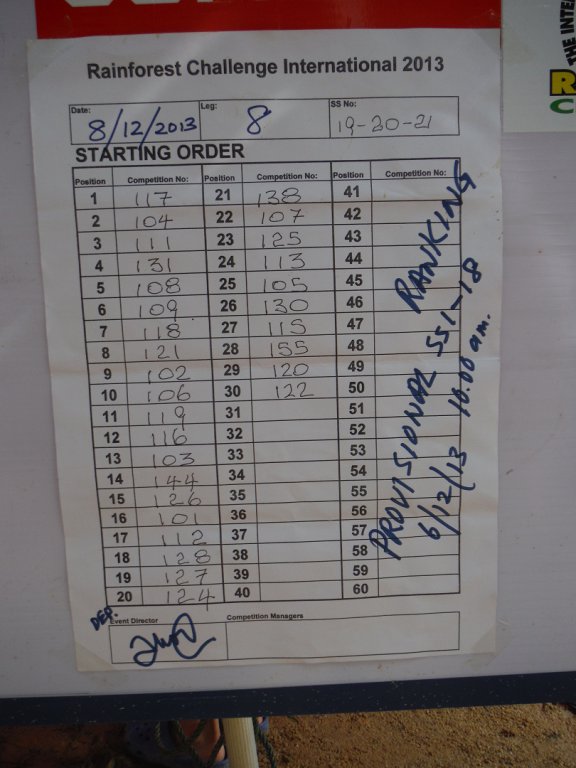 THE INTE
R
C
Rainforest Challenge International 2013
Date: 8/12/2013 Leg: 8 SS No: 19-20-21
STARTING ORDER
Position Competition No: Position Competition No: Position Competition No:
1 117 21 138 41
2 104 22 107 42
3 111 23 125 43
4 131 24 113 44
5 108 25 105 45
6 109 26 130 46
7 118 27 115 47
8 121 28 155 48
9 102 29 120 49
10 106 30 122 50
11 119 31 51
12 116 32 52
13 103 33 53
14 144 34 54
15 126 35 55
16 101 36 56
17 112 37 57
18 128 38 58
19 127 39 59
20 124 40 60
PROVISIONAL RANKING
SS1-18
6/12/13 10.00 am.
DEP.
Event Director Competition Managers